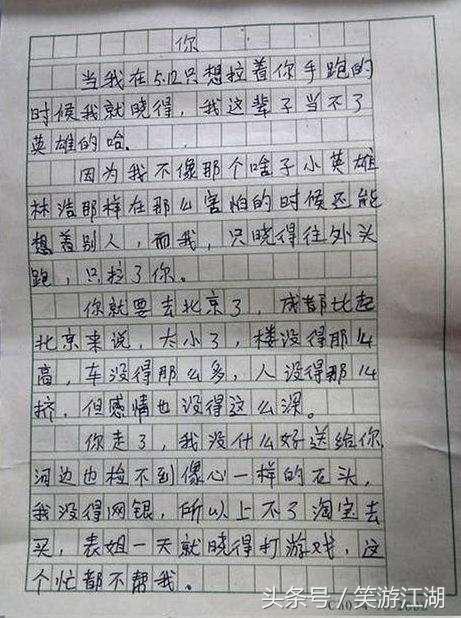 你
当我在5.12只想拉着你手跑的
时候我就晓得，我这辈子当不了
英雄的哈.
因为我不像那个啥子小英雄
林浩那样在那么害怕的时候还能
想着别人，而我，只晓得往外头
跑，只拉了你。
你就要去北京了，成都比起
北京来说，太小了，楼没得那么
高，车没得那么多，人没得那么
挤，但感情也没得这么深。
你走了，我没什么好送给你
河边也检不到像心一样的石头，
我没得网银，所以上不了淘宝去
买，表姐一天就晓得打游戏，这
个忙都不帮我。
头条号／笑游江湖